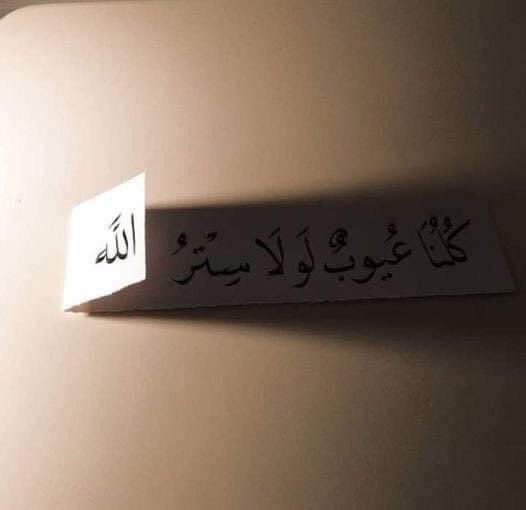 كُلُنُا عُيوبٌ لَولَا سِترُ اللَّه